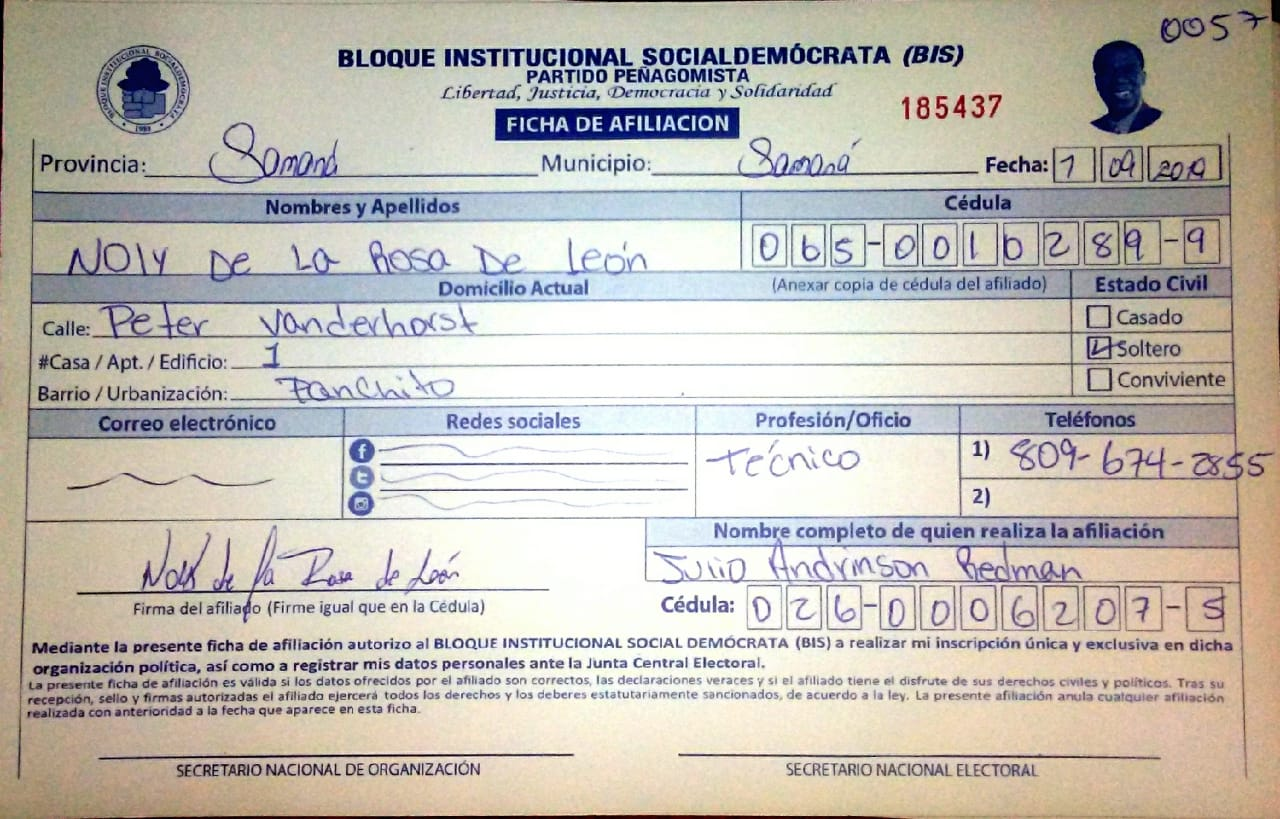 0057
BLOQUE INSTITUCIONAL SOCIALDEMÓCRATA (BIS)
PARTIDO PEÑAGOMISTA
Libertad, Justicia, Democracia y Solidaridad
185437
FICHA DE AFILIACION
BLOQUE INSTITUCIONAL SOCIALDEMOCRATA
Provincia: Samaná Municipio: Samaná Fecha: 1 09 2019
Nombres y Apellidos Cédula
Noly De La Rosa De León 065-0010289-9
Domicilio Actual (Anexar copia de cédula del afiliado) Estado Civil
Calle: Peter Vanderhorst Casado
#Casa / Apt. / Edificio: 1 Soltero
Barrio / Urbanización: Panchito Conviviente
Correo electrónico Redes sociales Profesión/Oficio Teléfonos
Técnico 1) 809-674-2855
2)
Nombre completo de quien realiza la afiliación
Noly de la Rosa de León Julio Andrinson Redman
Firma del afiliado (Firme igual que en la Cédula) Cédula: 026-0006207-5
Mediante la presente ficha de afiliación autorizo al BLOQUE INSTITUCIONAL SOCIAL DEMÓCRATA (BIS) a realizar mi inscripción única y exclusiva en dicha
organización política, así como a registrar mis datos personales ante la Junta Central Electoral.
La presente ficha de afiliación es válida si los datos ofrecidos por el afiliado son correctos, las declaraciones veraces y si el afiliado tiene el disfrute de sus derechos civiles y políticos. Tras su
recepción, sello y firmas autorizadas el afiliado ejercerá todos los derechos y los deberes estatutariamente sancionados, de acuerdo a la ley. La presente afiliación anula cualquier afiliación
realizada con anterioridad a la fecha que aparece en esta ficha.
SECRETARIO NACIONAL DE ORGANIZACIÓN SECRETARIO NACIONAL ELECTORAL